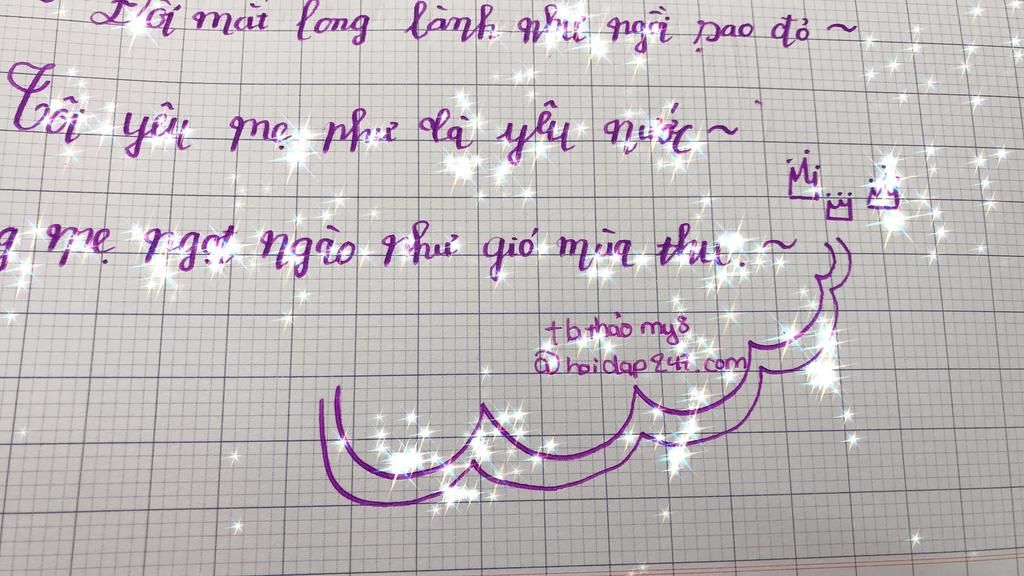 Đôi mắt long lanh như ngôi sao đỏ ~
Tôi yêu mẹ như là yêu nước ~
mẹ ngọt ngào như gió mùa thu. ~
tbthảo my8
@hoidap247.com